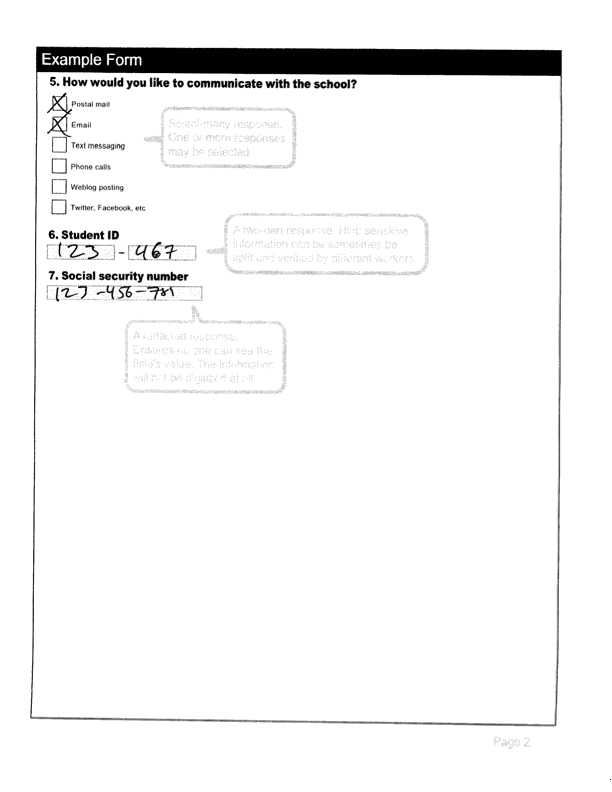 Example Form
5. How would you like to communicate with the school?
Postal mail
Email
Text messaging
Phone calls
Weblog posting
Twitter, Facebook, etc
Select-many response.
One or more responses
may be selected.
6. Student ID
123 - 467
A two-part response. Hint: sensitive
information can be sometimes be
split and verified by different workers.
7. Social security number
123-456-781
A redacted response.
Ensures no one can see the
field's value. The information
will not be digitized at all.
Page 2